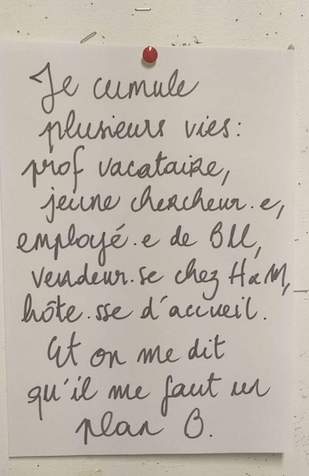 Je cumule
plusieurs vies :
prof vacataire,
jeune chercheur·e,
employé·e de BU,
vendeur·se chez H&M,
hôte·sse d'accueil.
Et on me dit
qu'il me faut un
plan B.